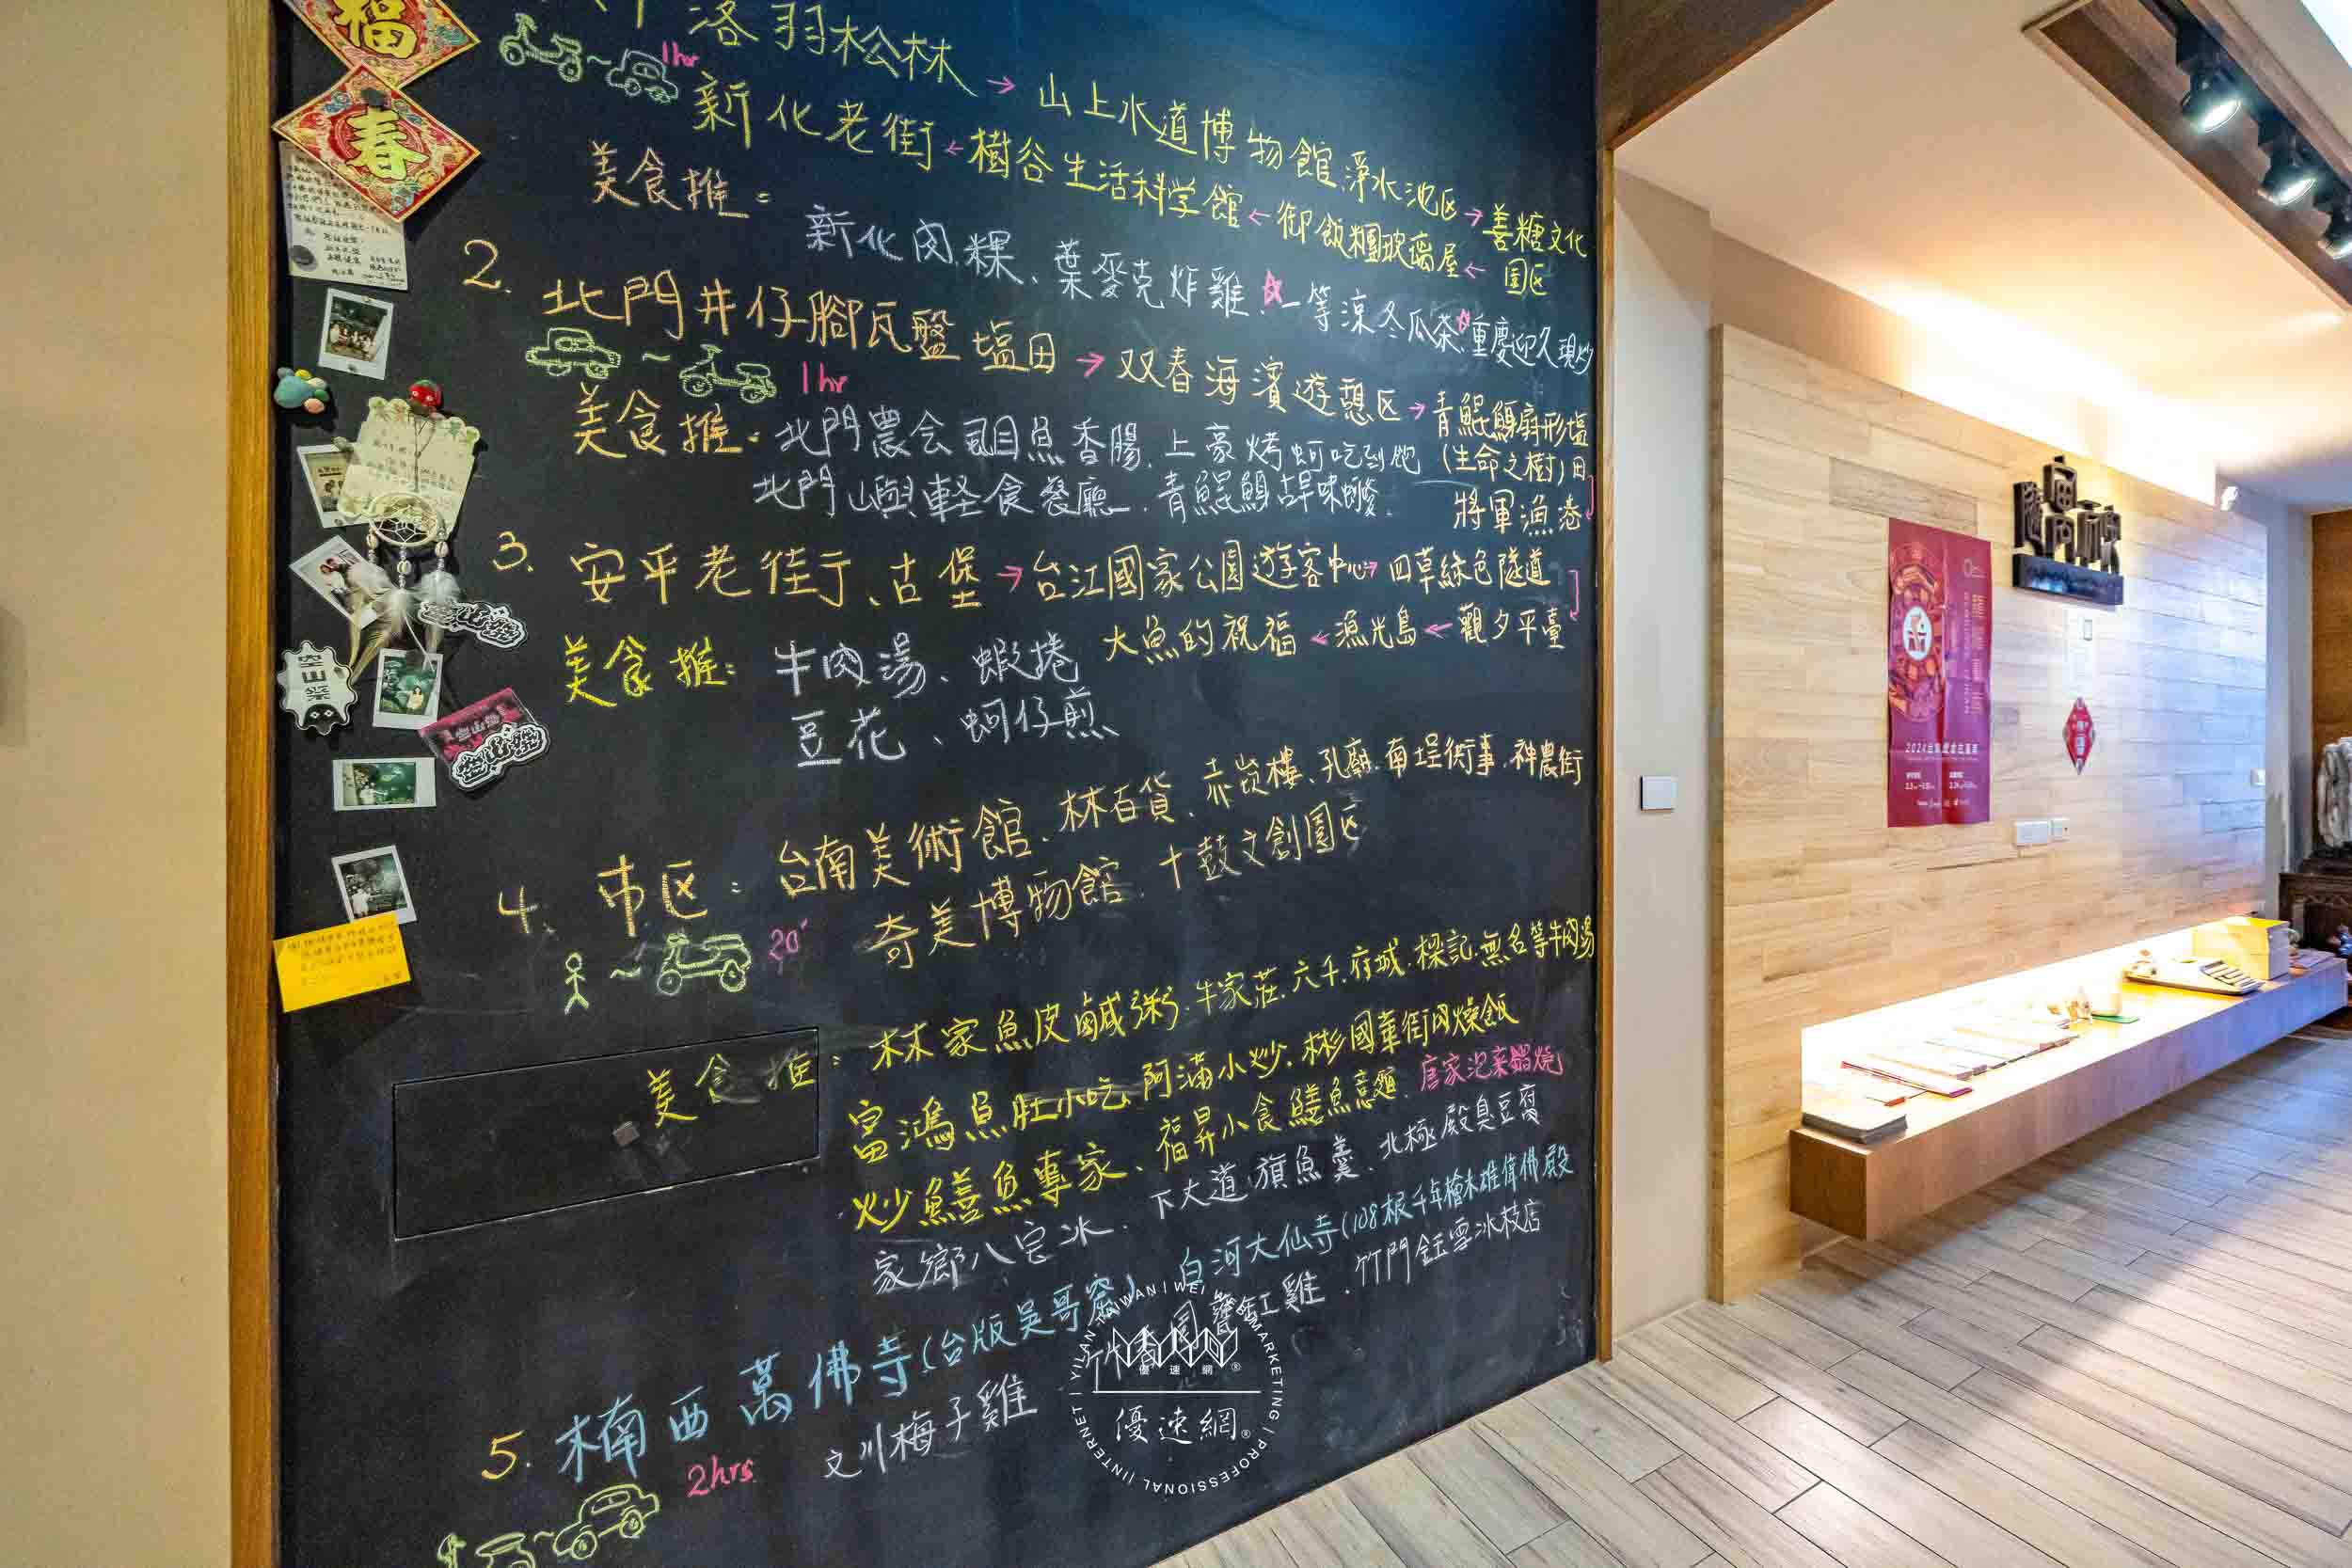 福
春
落羽松林 → 山上水道博物館.淨水池区 → 善糖文化
1hr
新化老街 ← 樹谷生活科学館 ← 御飯糰玻璃屋 ← 園区
美食推:
新化肉粿、葉麥克炸雞!☆一等涼冬瓜茶☆.重慶迎久現炒
2. 北門井仔腳瓦盤塩田 → 双春海濱遊憩区 → 青鯤鯓扇形塩
1hr
美食推: 北門農会虱目魚香腸.上豪烤蚵吃到飽 (生命之樹)田
北門山與軽食餐廳.青鯤鯓古早味蝦 將軍漁港
3. 安平老街、古堡 → 台江國家公園遊客中心 → 四草綠色隧道
大魚的祝福 ← 漁光島 ← 觀夕平臺
美食推: 牛肉湯、蝦捲
豆花、蚵仔煎
4. 市区: 台南美術館、林百貨、赤崁樓、孔廟.南埕衖事.神農街
20'
奇美博物館.十鼓文創園区
美食推: 林家魚皮鹹粥.牛家莊.六千.府城.樑記.無名等牛肉湯
富鴻魚肚小吃.阿滿小炒.彬國華街肉燥飯
炒鱔魚專家、福昇小食鱔魚意麵、唐家泡菜鍋燒
家鄉八宝冰.下大道旗魚羹.北極殿臭豆腐
5. 楠西萬佛寺(台版吳哥窟)、白河大仙寺(108根千年檜木雄偉佛殿
2hrs.
文川梅子雞 竹香園甕缸雞.竹門鈺雲冰枝店
空山祭
優速網®
優速網®
YIYUAN TAIWAN | WEI WEB MARKETING | PROFESSIONAL | INTERNET |